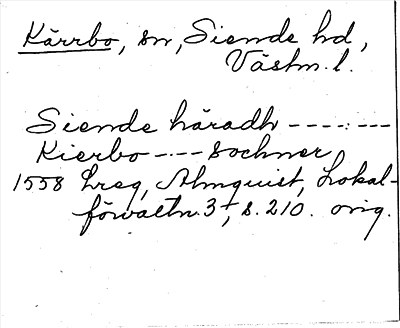 Kärrbo, sn, Siende hd,
Västm. l.
Siende häradh -------
Kierbo ---- sochner
1558 Lreg, Almquist, Lokal-
förvaltn. 3, s. 210. orig.